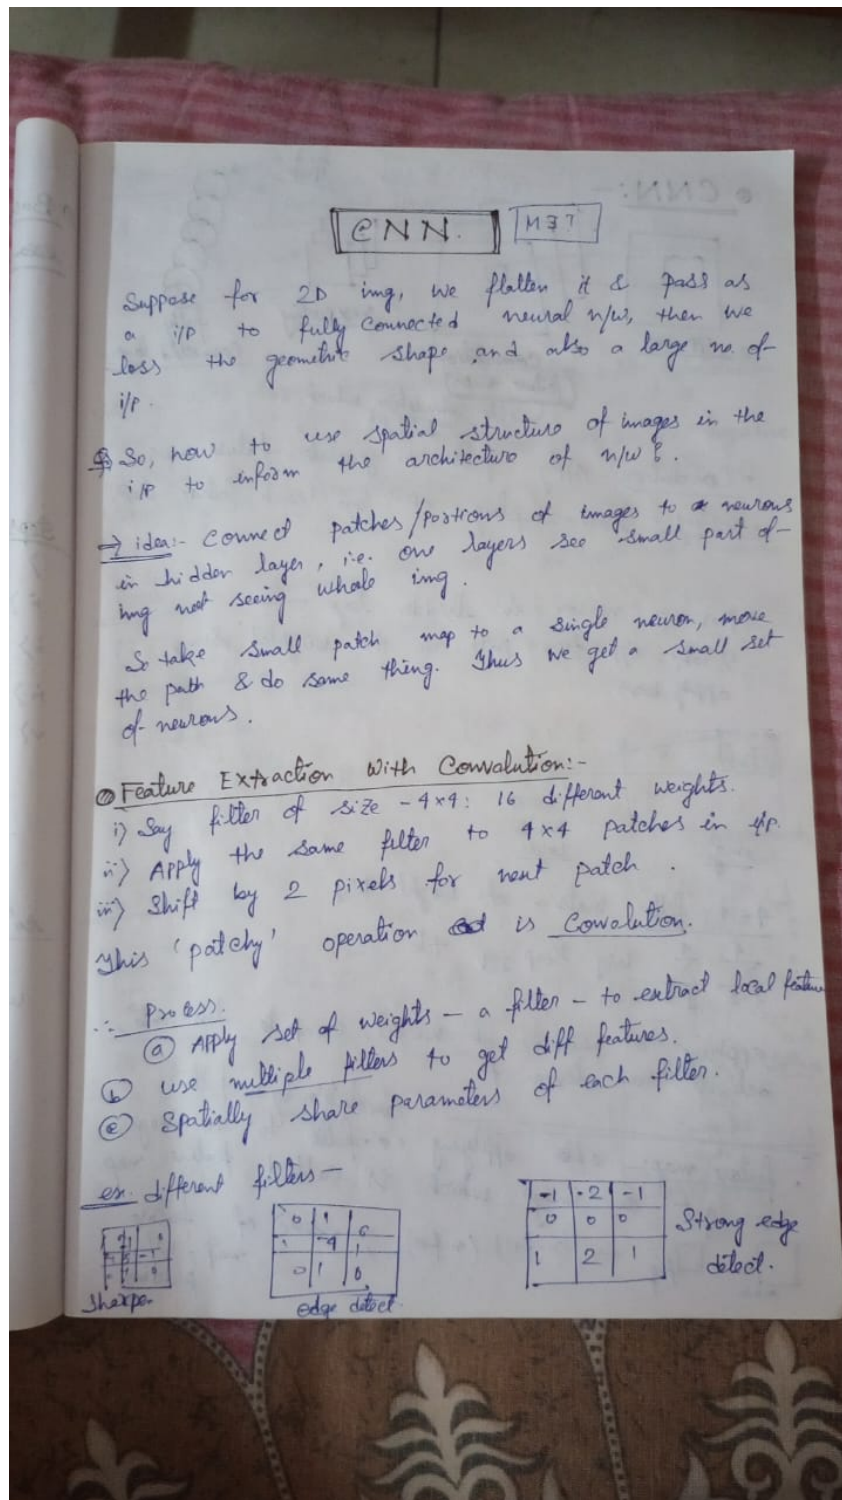 CNN. MIT
Suppose for 2D img, we flatten it & pass as
a i/p to fully connected neural n/w, then we
loss the geometric shape and also a large no. of
i/p.
So, how to use spatial structure of images in the
i/p to inform the architecture of n/w ?.
→ idea:- Connect patches/portions of images to neurons
in hidden layer, i.e. one layers see small part of
img not seeing whole img.
So take small patch map to a single neuron, move
the path & do same thing. Thus we get a small set
of neurons.
Feature Extraction with Convolution:-
i) Say filter of size - 4×4: 16 different weights.
ii) Apply the same filter to 4×4 patches in i/p.
iii) Shift by 2 pixels for next patch.
This 'patchy' operation is Convolution.
∴ Process.
(a) Apply set of weights - a filter - to extract local feature
(b) use multiple filters to get diff features.
(c) Spatially share parameters of each filter.
ex. different filters -
-1 -2 -1
0 1 0
0 0 0
Strong edge
1 -4 1
1 2 1
detect.
0 1 0
Sharpe.
edge detect.